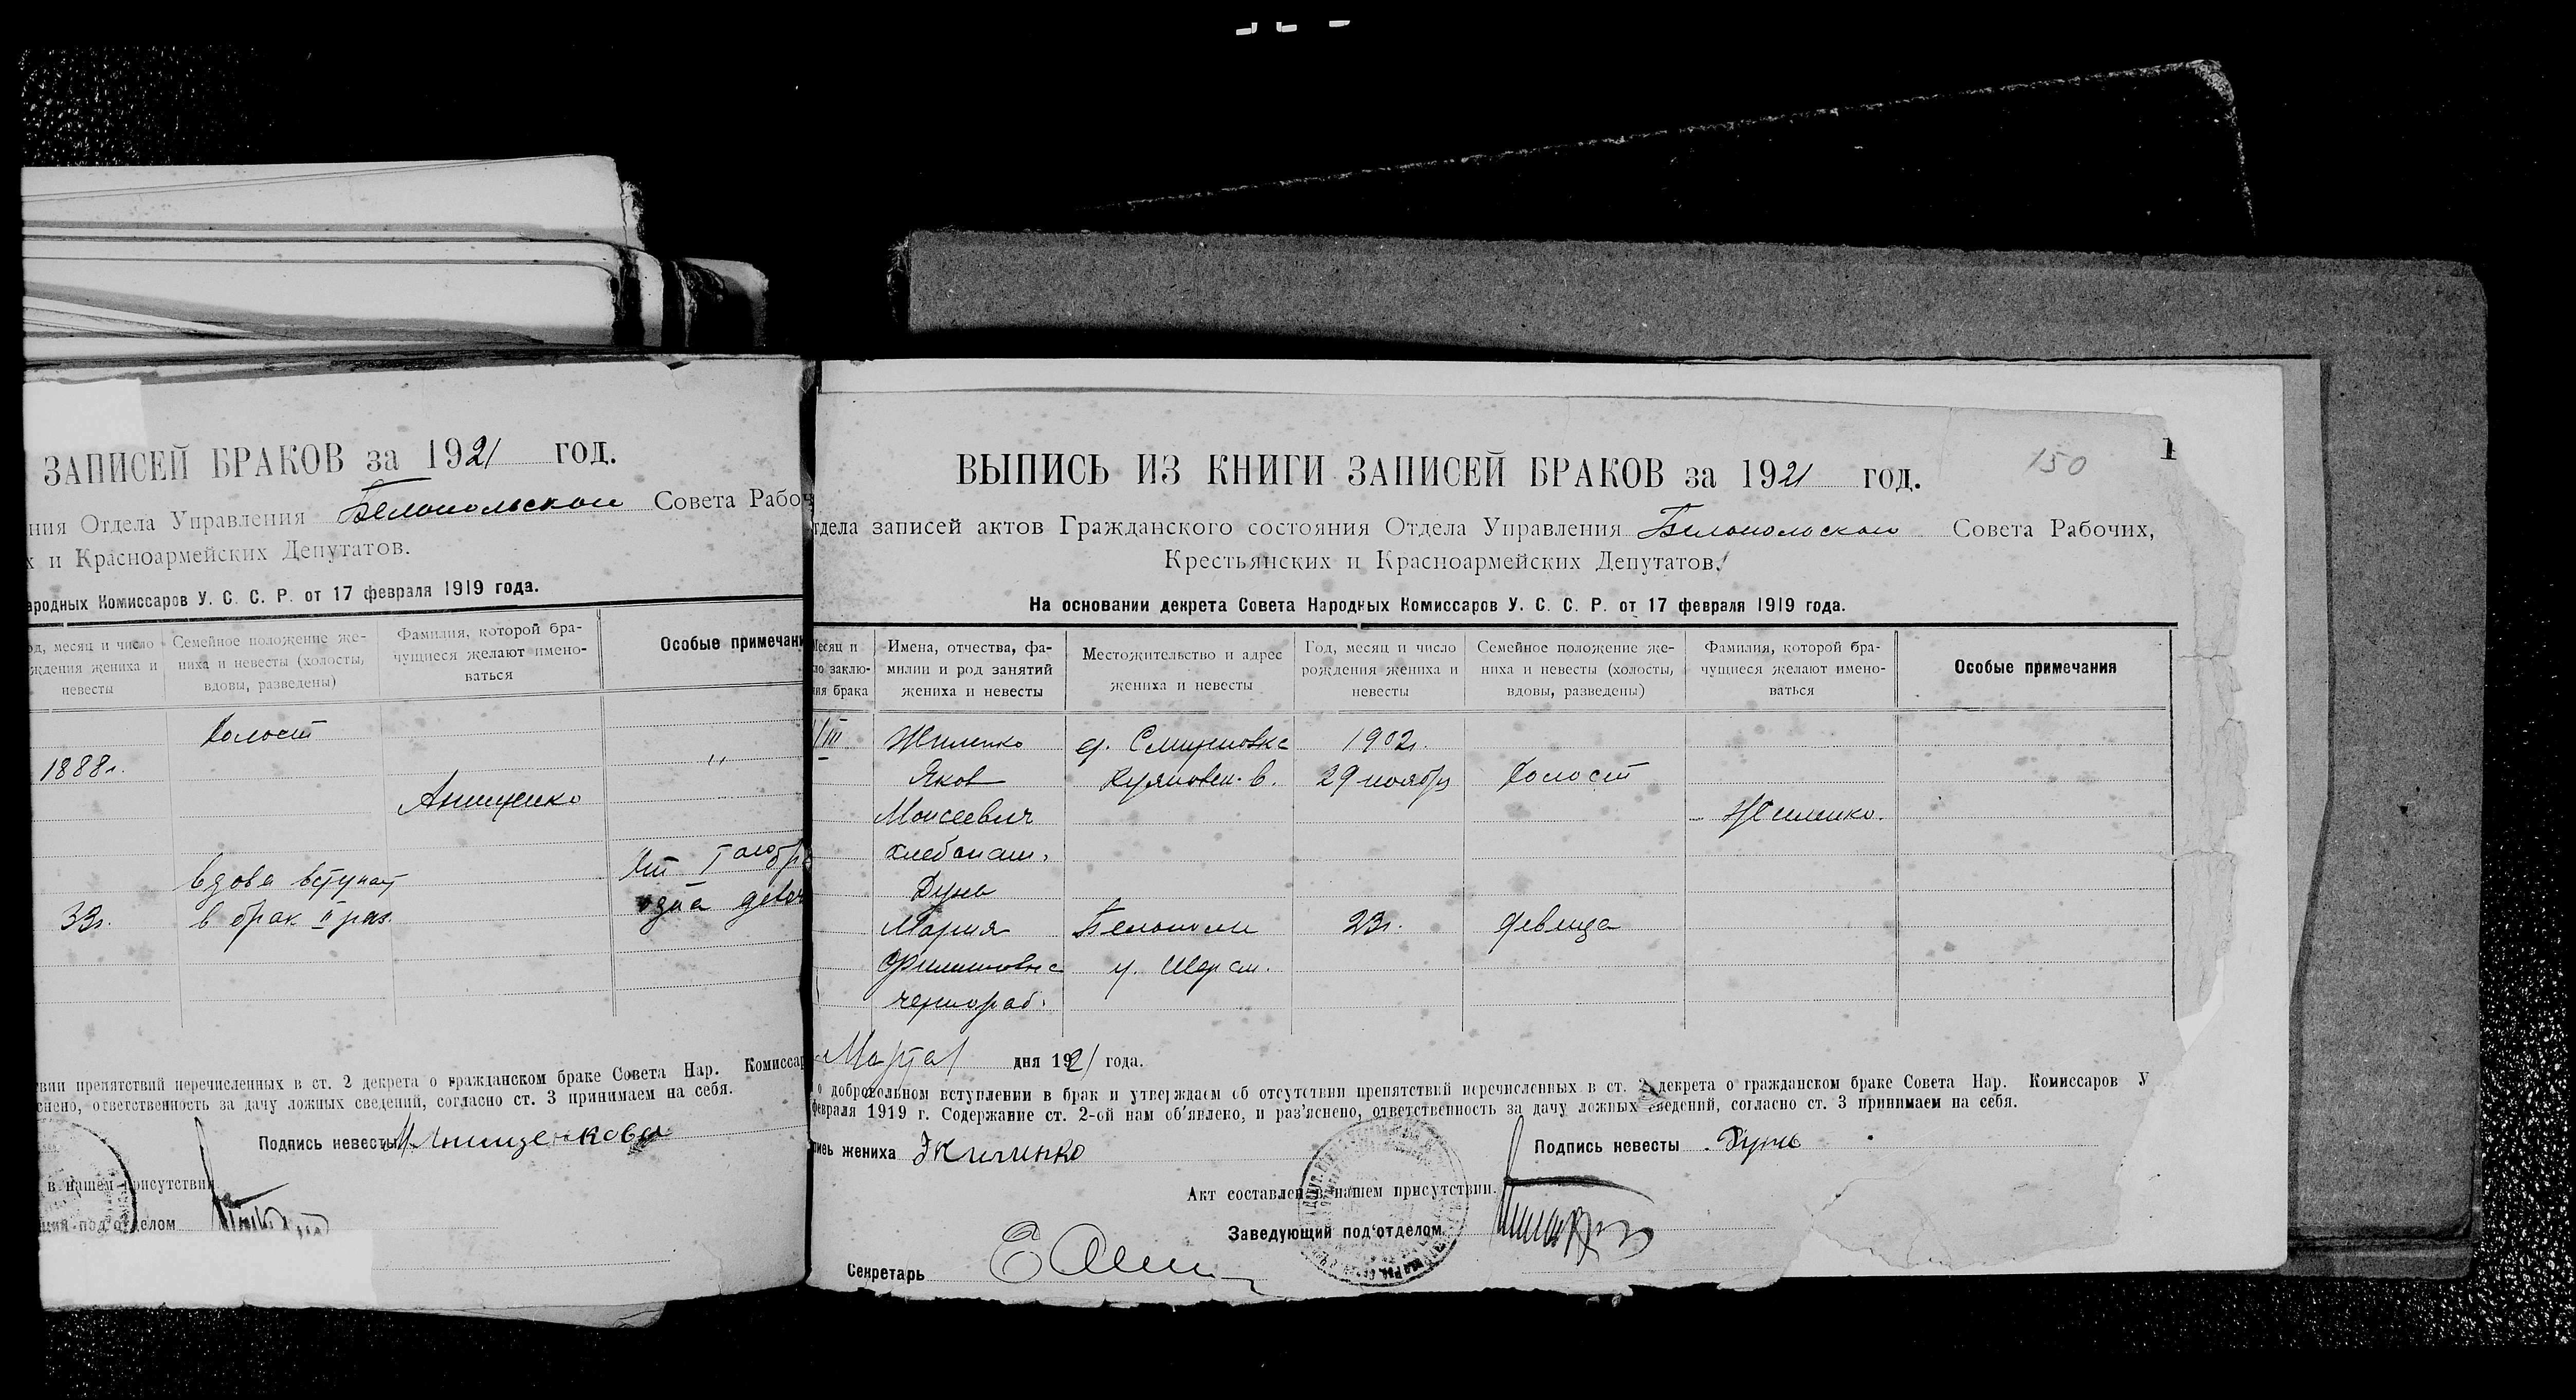 ЗАПИСЕЙ БРАКОВ за 1921 год.
ния Отдела Управления Белопольской Совета Рабоч
х и Красноармейских Депутатов.
ародных Комиссаров У. С. С. Р. от 17 февраля 1919 года.
од, месяц и число
ждения жениха и
невесты
Семейное положение же-
ниха и невесты (холосты,
вдовы, разведены)
Фамилия, которой бра-
чущиеся желают имено-
ваться
Особые примечани
Холост
1888г. "
Анищенко
вдова вступает
33г. в брак II раз. одна
твии препятствий перечисленных в ст. 2 декрета о гражданском браке Совета Нар. Комиссар
снено, ответственность за дачу ложных сведений, согласно ст. 3 принимаем на себя.
Подпись невесты Анищенкова
в нашем присутствии
щий под'отделом
150
ВЫПИСЬ ИЗ КНИГИ ЗАПИСЕЙ БРАКОВ за 1921 год.
тдела записей актов Гражданского состояния Отдела Управления Белопольской Совета Рабочих,
Крестьянских и Красноармейских Депутатов.
На основании декрета Совета Народных Комиссаров У. С. С. Р. от 17 февраля 1919 года.
Месяц и
ло заклю-
ния брака
Имена, отчества, фа-
милии и род занятий
жениха и невесты
Местожительство и адрес
жениха и невесты
Год, месяц и число
рождения жениха и
невесты
Семейное положение же-
ниха и невесты (холосты,
вдовы, разведены)
Фамилия, которой бра-
чущиеся желают имено-
ваться
Особые примечания
/III Жиленко 1902г.
Яков 29 ноябр холост
Моисеевич Жиленко.
хлебопаш.
Дунь
Мария Белополи 23г. девица
Филиповна
чернораб.
Марта дня 1921 года.
о добровольном вступлении в брак и утверждаем об отсутствии препятствий перечисленных в ст. 2 декрета о гражданском браке Совета Нар. Комиссаров У
февраля 1919 г. Содержание ст. 2-ой нам об'явлено, и раз'яснено, ответственность за дачу ложных сведений, согласно ст. 3 принимаем на себя.
пись жениха Жиленко Подпись невесты Дунь
Акт составлен в нашем присутствии.
Заведующий под'отделом
Секретарь